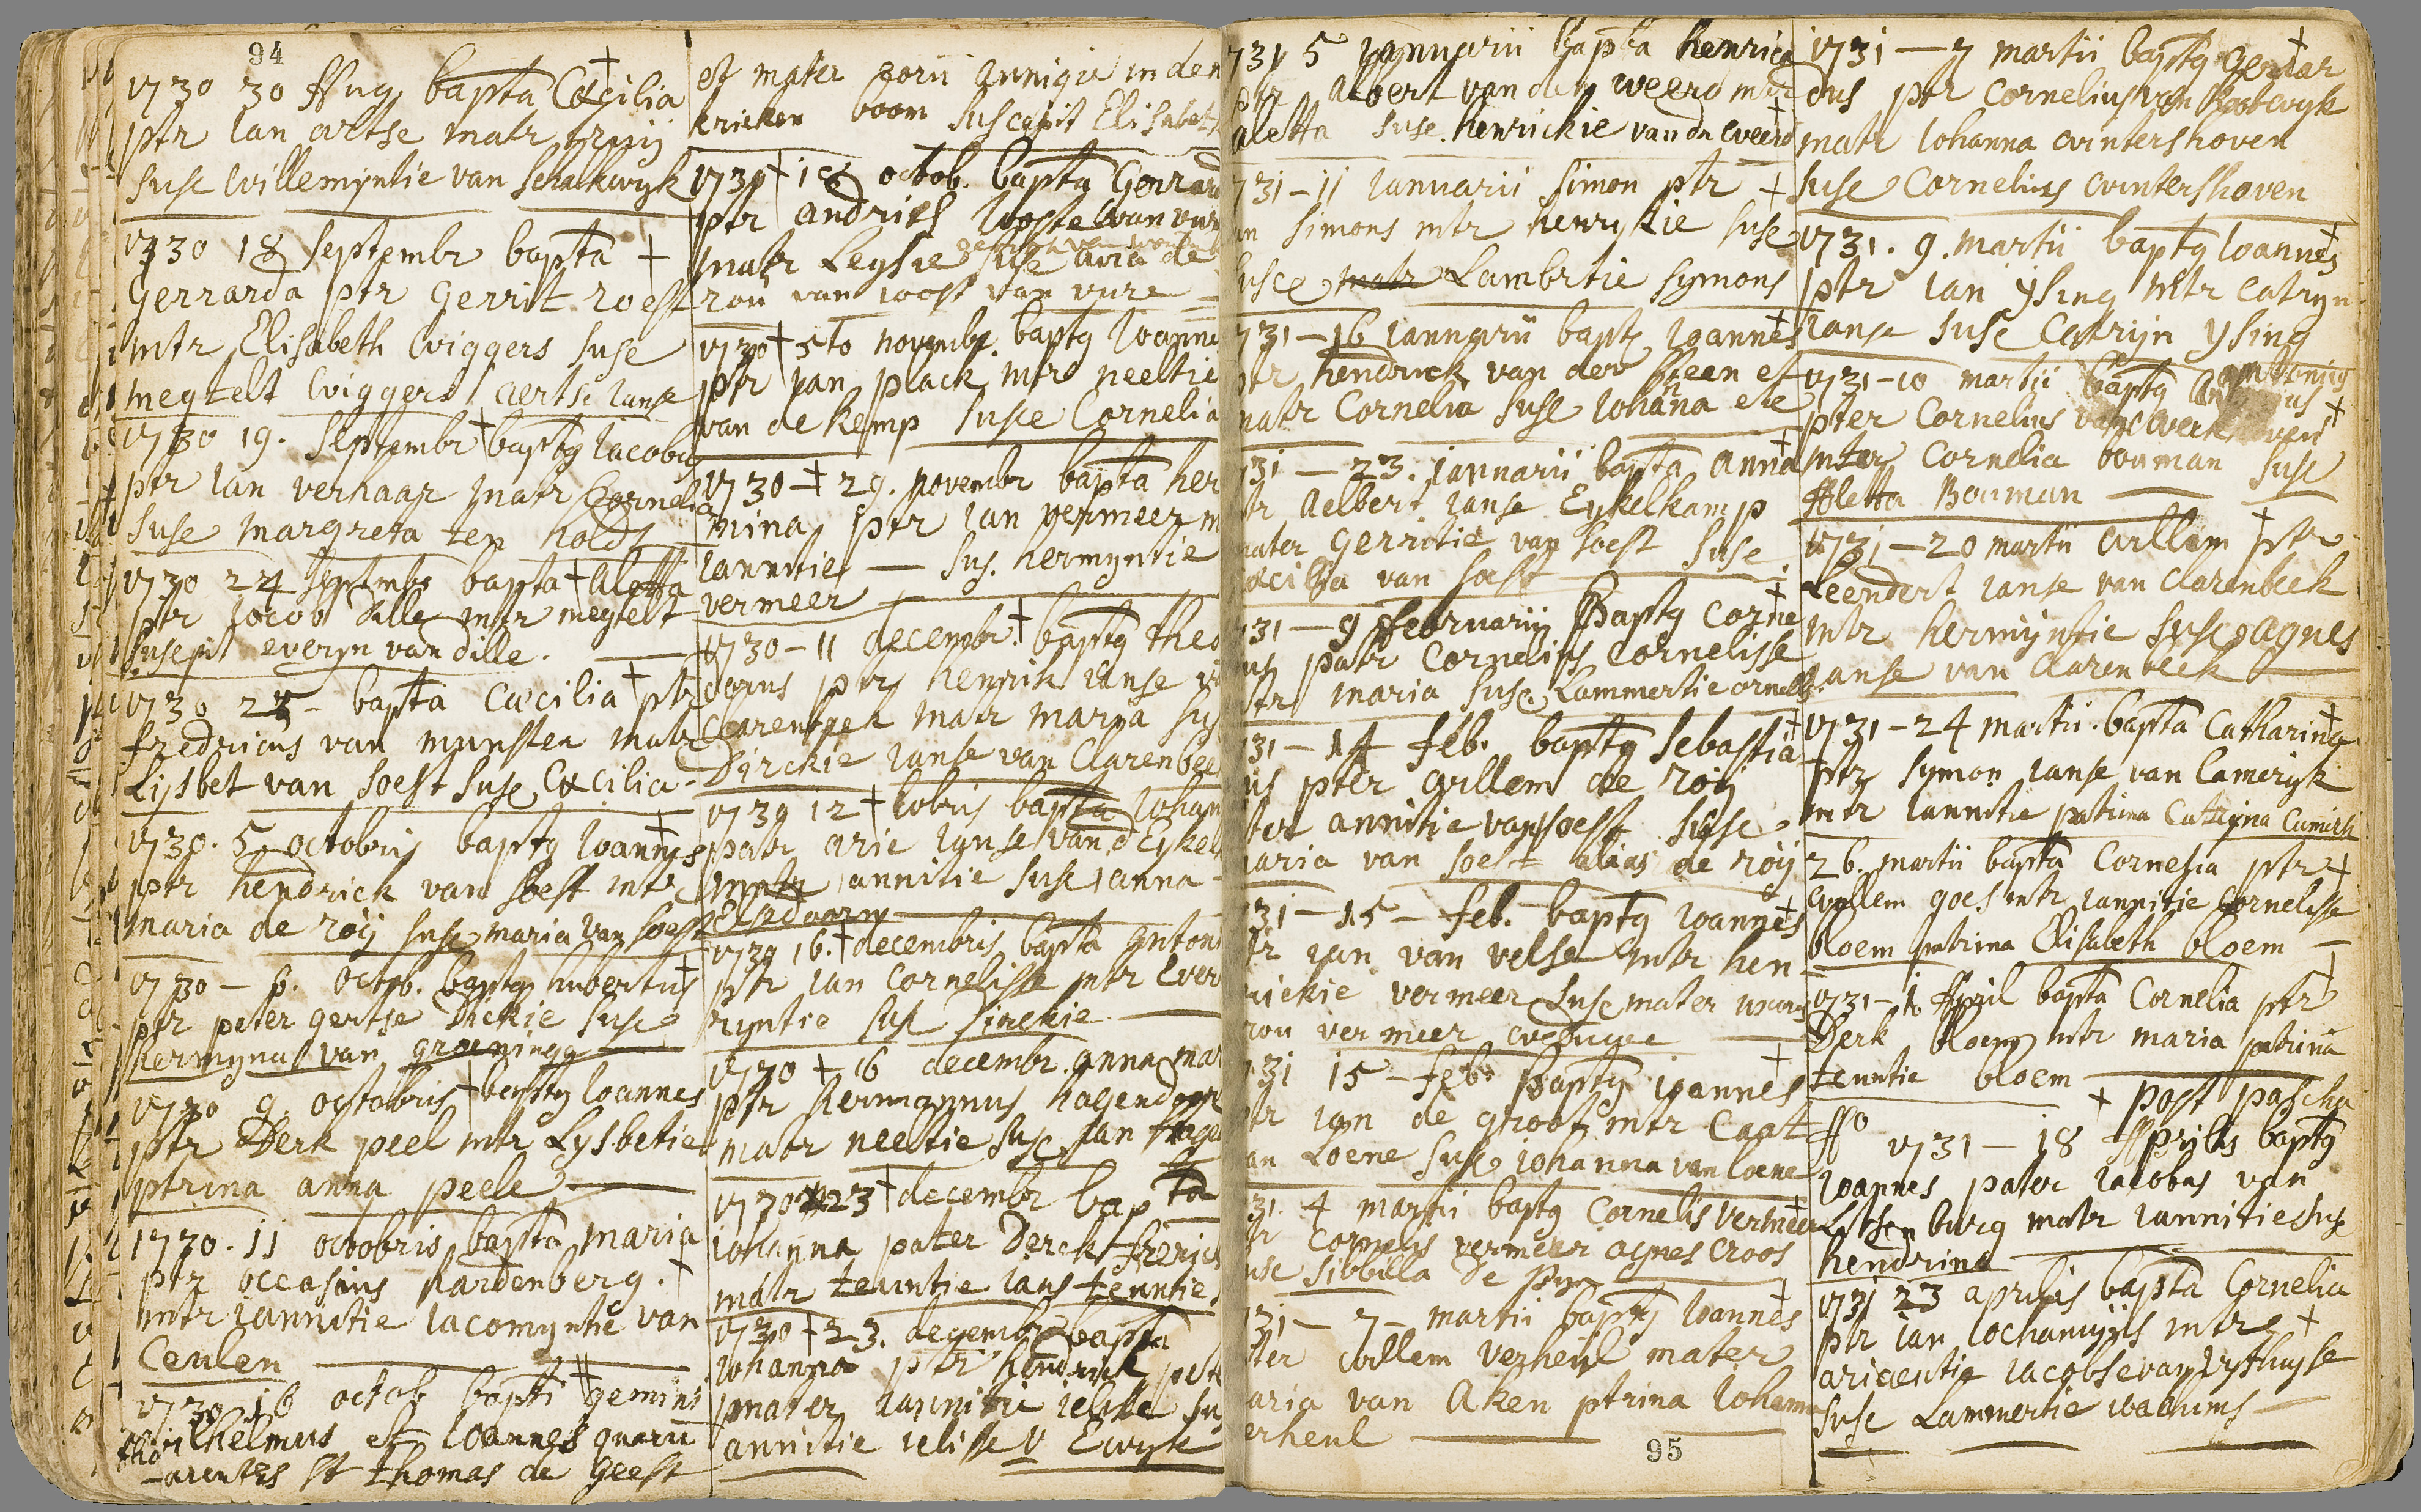 94
1730 30 Aug bapta Cæcilia
ptr Ian artse matr
suse Willemyntie van Schalkwyk
1730 18 septembr bapta +
Gerrarda ptr Gerrit roest
mtr Elisabeth Wiggers suse
megtelt Wiggers aertse Ianse
1730 19. septembr + baptq Iacobus
ptr Ian verhaar matr Cornelia
suse margreta ten
1730 24 septembr bapta + Aletta
ptr Iacob dille mtr megtelt
suscepit everyn van dille.
1730 25 - bapta Cæcilia + ptr
fredricus van munster matr
Lijsbet van soest suse Cæcilia -
1730. 5 octobris baptq Ioannes
ptr hendrick van soest mtr
maria de röij suse maria van soest
1730 - octob. baptq hubertus
ptr peter gertse Dickie suse
hermyna van groeningg
1730 9 octobris + baptq Ioannes
ptr Derk peel mtr Lysbetie
ptrina anna peele
1730. 11 octobris bapta maria
ptr occasius hardenberg. +
mtr Iannitie Iacomyntie van
Ceulen
1730 16 octob bapti gemini
Wilhelmus et Ioannes quorū
parentes st thomas de Geest
et mater eorū annigie in den
kricken boom suscepit Elisabet
1730 + 18 octob. baptq Gerrard
ptr andries Ioosten van vure
matr Leysie suse aria de
roū van joost van vure
1730 + 5to novembr. baptq Ioanne
ptr Jan plack mtr neeltie
van de kemp susce Cornelia
1730 + 29. novembr bapta her
mina ptr Ian vermeer m
Iannitie - sus. hermyntie
vermeer
1730 - 11 decembr + baptq theo
dorus ptr henrik Ianse
Clarenbeek matr maria sus
Dirckie Ianse van Clarenbee
1730 12 + Iobris bapta Iohan
patr arie Ianse van d Eykel
matr Iannitie suse Ianna
1730 16. + decembris bapta Anton
ptr Ian Cornelisse mtr Ever
ryntie suse
1730 + 16 decembr. anna mar
ptr hermannus hagendoor
matr neeltie suse Ian hage
1730 23 + decembr bap ta
iohanna pater Derck frerics
matr teuntie Ians teuntie
1730 + 23. decembr bapta
Iohanna ptr hendrick pete
mater Iannitie ielisse su
annitie ielisse v Ewyk
731 5 Ianuarii bapta henrica
ptr Albert van den weerd mtr
aletta suse. henrickie van dn weerd
731 - 11 Ianuarii simon ptr +
an simons mtr henrykie suse
susce matr Lambrtie symons
731 - 16 Iannarii baptq Ioannes
ptr hendrick van der steen et
matr Cornelia suse Iohāna
731 - 23. Iannarii bapta anna
ptr Aelbert Ianse Eykelkamp
mater Gerritie van soest suse
cæcilia van soest
731 - 9 februarij Baptq Corne
us patr Cornelius Cornelisse
mtr maria suse. Lammertie
731 - 14 feb. baptq sebastia
us pter Willem de röij
ter annitie van soest suse
maria van soest alias de röij
731 - 15 - feb. baptq Ioannes
ptr Ian van velse mtr hen
rickie vermeer suse mater
vermeer
731 15 - feb. baptq Ioannes
ptr Ian de groot mtr Caat
an Loene suse iohanna van loene
731. 4 martii baptq Cornelis vermeer
ptr Cornelis vermeer agnes Croos
suse sibbilla de
731 - 7 - martii baptq Ioannes
ter Willem verheul mater
aria van Aken ptrina Iohanna
erheul
95
1731 - 7 martii baptq Gerrar
dus ptr Cornelius van
matr Iohanna Wintershoven
suse Cornelius Wintershoven
1731. 9. martii baptq Ioannes
ptr Ian ysing mtr Catryn
Ianse suse Catryn ysing
1731 - 10 martii baptq Antonius
pter Cornelius van
mter Cornelia bouman suse
Aletta Bouman
1731 - 20 martii Willem + ptr
Leendert Ianse van Clarenbeek
mtr hermijntie susce Agnes
Ianse van Clarenbeek
1731 - 24 martii. bapta Catharina
ptr symon Ianse van Cameryk
mtr Iannitie patrina Catryna
26. martii bapta Cornelia ptr +
Willem goes mtr Iannitie Cornelisse
bloem patrina Elisabeth bloem
1731 - 1 April bapta Cornelia ptr
Derk bloem mtr maria patrina
teuntie bloem
+ post pascha
1731 - 18 Aprilis baptq
Ioannes pater Iacobus van
burg matr Iannitie suse
hendrina
1731 23 aprilis bapta Cornelia
ptr Ian Iochamyns mtr +
ariaentie Iacobse van
suse Lammertie